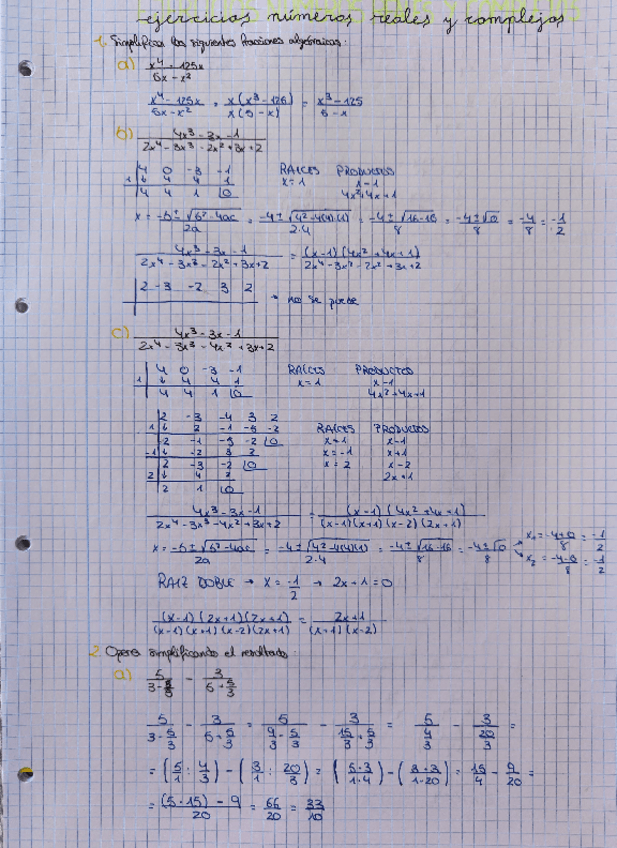 ejercicios números reales y complejos
1. Simplifica las siguientes fracciones algebraicas:
a) (x⁴ - 125x)/(5x - x²)
(x⁴ - 125x)/(5x - x²) = x(x³ - 125)/x(5 - x) = (x³ - 125)/(5 - x)
b) (4x³ - 3x - 1)/(2x⁴ - 3x³ - 2x² + 3x + 2)
4 0 -3 -1 RAÍCES PRODUCTOS
1 ↓ 4 4 1 x = 1 x - 1
4 4 1 |0 4x² + 4x + 1
x = (-b ± √(b² - 4ac))/2a = (-4 ± √(4² - 4(4)(1)))/2·4 = (-4 ± √(16 - 16))/8 = (-4 ± √0)/8 = -4/8 = -1/2
(4x³ - 3x - 1)/(2x⁴ - 3x³ - 2x² + 3x + 2) = (x - 1)(4x² + 4x + 1)/(2x⁴ - 3x³ - 2x² + 3x + 2)
2 -3 -2 3 2
→ no se puede
c) (4x³ - 3x - 1)/(2x⁴ - 3x³ - 4x² + 3x + 2)
4 0 -3 -1 RAÍCES PRODUCTOS
1 ↓ 4 4 1 x = 1 x - 1
4 4 1 |0 4x² + 4x + 1
2 -3 -4 3 2
1 ↓ 2 -1 -5 -2 RAÍCES PRODUCTOS
2 -1 -5 -2 |0 x = 1 x - 1
-1 ↓ -2 3 2 x = -1 x + 1
2 -3 -2 |0 x = 2 x - 2
2 ↓ 4 2 2x + 1
2 1 |0
(4x³ - 3x - 1)/(2x⁴ - 3x³ - 4x² + 3x + 2) = (x - 1)(4x² + 4x + 1)/(x - 1)(x + 1)(x - 2)(2x + 1)
x = (-b ± √(b² - 4ac))/2a = (-4 ± √(4² - 4(4)(1)))/2·4 = (-4 ± √(16 - 16))/8 = (-4 ± √0)/8 → x₁ = (-4 + 0)/8 = -1/2
→ x₂ = (-4 - 0)/8 = -1/2
RAÍZ DOBLE → x = -1/2 → 2x + 1 = 0
(x - 1)(2x + 1)(2x + 1)/(x - 1)(x + 1)(x - 2)(2x + 1) = (2x + 1)/(x + 1)(x - 2)
2. Opera simplificando el resultado:
a) 5/(3 - 5/3) - 3/(5 + 5/3)
5/(3 - 5/3) - 3/(5 + 5/3) = 5/(9/3 - 5/3) - 3/(15/3 + 5/3) = 5/(4/3) - 3/(20/3) =
= (5/1 : 4/3) - (3/1 : 20/3) = (5·3/1·4) - (3·3/1·20) = 15/4 - 9/20 =
= ((5·15) - 9)/20 = 66/20 = 33/10